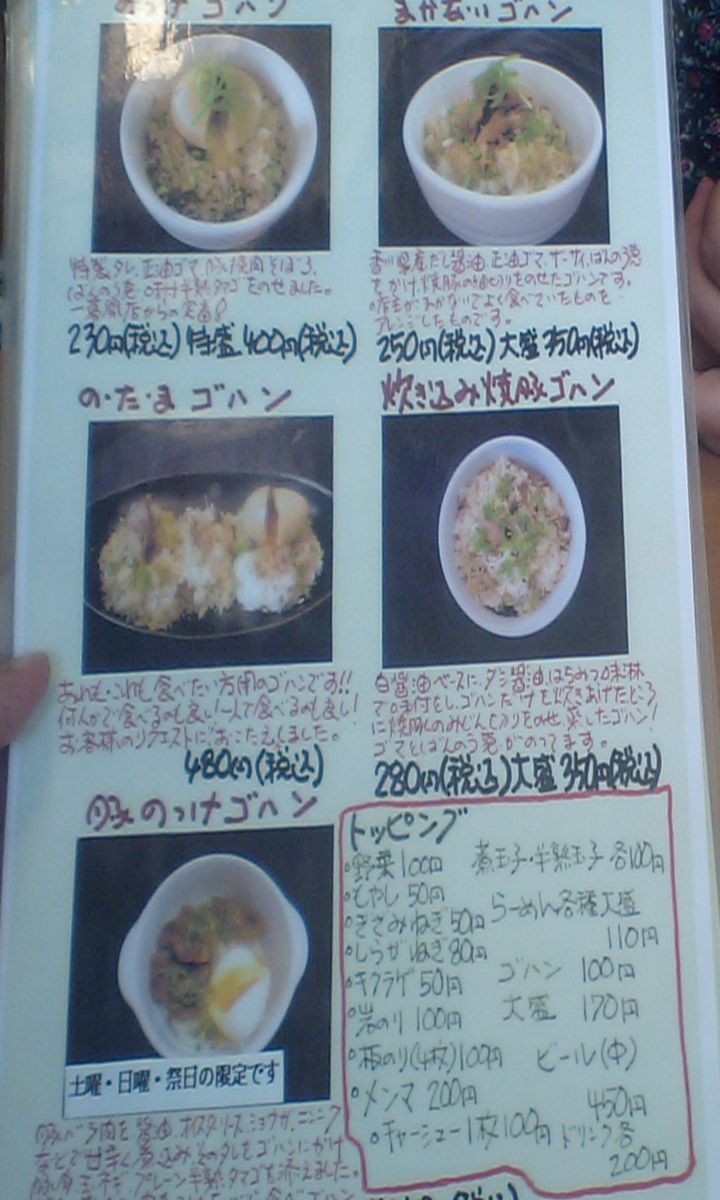 まかないゴハン
特製タレ、正油ゴマ、豚焼肉そぼろ、
ばんのう葱、味付半熟タマゴをのせました。
一番風店からの定番!
230円(税込) 特盛 400円(税込)
香川県産だし醤油、正油ゴマ、ザーサイ、ばんのう葱
をかけ、焼豚の細切りをのせたゴハンです。
店主がまかないでよく食べていたものを
アレンジしたものです。
250円(税込) 大盛 350円(税込)
の・た・ま ゴハン
あれも・これも食べたい方用のゴハンです!!
何人かで食べるのも良い!一人で食べるのも良い!
お客様のリクエストにおこたえしました。
480円(税込)
炊き込み焼豚ゴハン
白醤油ベースに、ダシ醤油、はちみつ、味淋
で味付をし、ゴハンだけを炊きあげたところ
に焼豚のみじん切りをのせ、蒸したゴハン!
ゴマとばんのう葱がのってます。
280円(税込) 大盛 350円(税込)
豚のっけゴハン
土曜・日曜・祭日の限定です
豚バラ肉を醤油、オイスターソース、ショウガ、ニンニク
などで甘辛く煮込みそのタレをゴハンにかけ
プレーン半熟タマゴを添えました。
トッピング
・野菜 100円
・もやし 50円
・きざみねぎ 50円
・しらがねぎ 80円
・キクラゲ 50円
・岩のり 100円
・板のり(4枚) 100円
・メンマ 200円
・チャーシュー1枚 100円
煮玉子・半熟玉子 各100円
らーめん各種大盛
110円
ゴハン 100円
大盛 170円
ビール(中)
450円
ドリンク各
200円